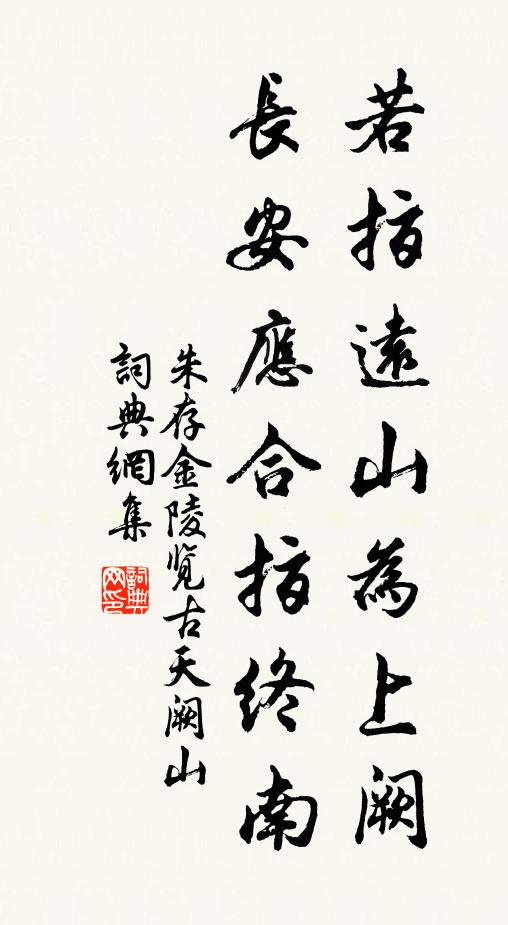 若指遠山為上闕
長安應合指終南
朱存金陵覽古天闕山
詞典網集
詞典網印